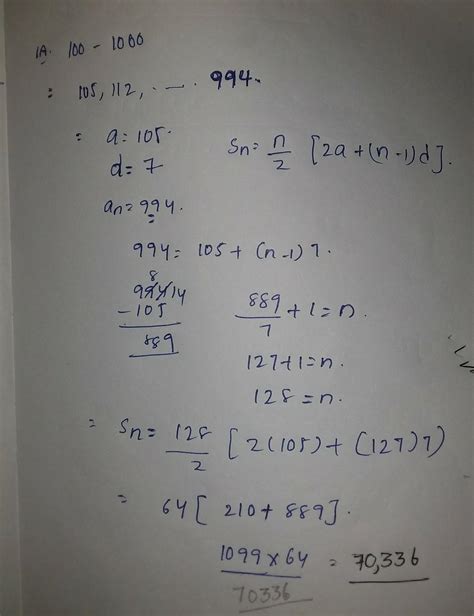 1A. 100 - 1000
= 105, 112, ..... 994.
= a = 105.
d = 7
Sn = n/2 [2a + (n-1)d].
an = 994.
994 = 105 + (n-1) 7.
8
99414
- 105
889
889/7 + 1 = n.
127 + 1 = n.
128 = n.
= Sn = 128/2 [2(105) + (127)7)
= 64 [ 210 + 889].
1099 × 64 = 70,336
70336